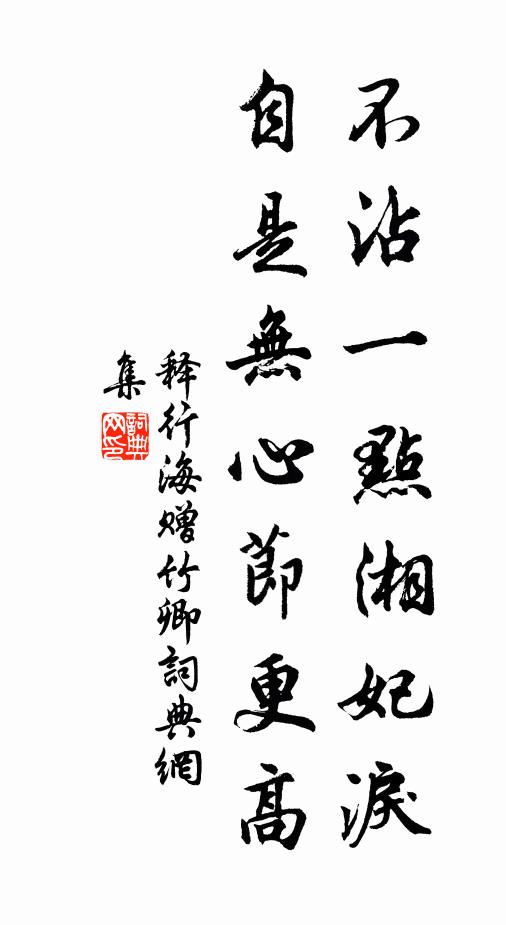 不沾一點湘妃淚
自是無心節更高
释行海赠竹卿詞典網
集
詞典网印